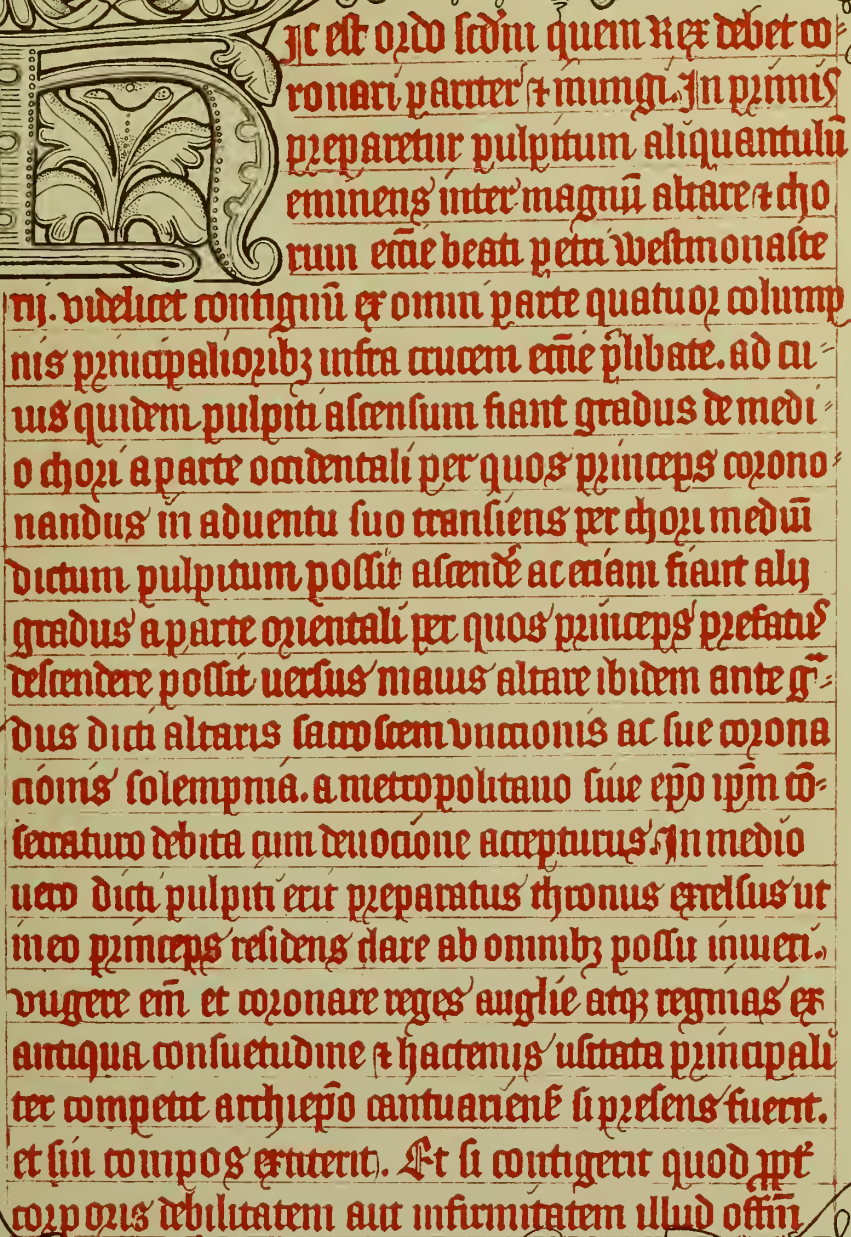 Hic est ordo scdm quem Rex debet co⸗
ronari pariter ⁊ inungi. In primis
preparetur pulpitum aliquantulū
eminens inter magnū altare ⁊ cho
rum eccīe beati petri westmonaste
rij. videlicet contiguū ex omni parte quatuor colump
nis principalioribꝫ infra crucem eccīe p̄libate. ad cu⸗
ius quidem pulpiti ascensum fiant gradus de medi⸗
o chori a parte occidentali per quos princeps corono⸗
nandus in aduentu suo transiens per chori mediū
dictum pulpitum possit ascendē ac etiam fiant alij
gradus a parte orientali per quos princeps prefatus
descendere possit uersus maius altare ibidem ante gͣ⸗
dus dicti altaris sacrosctem vnctionis ac sue corona
cionis solempnia. a metropolitano siue ep̄o ip̄m cō⸗
secraturo debita cum deuocione accepturus. In medio
uero dicti pulpiti erit preparatus thronus excelsus ut
in eo princeps residens clare ab omnibꝫ possit intueri.
vngere em̄ et coronare reges anglie atqꝫ reginas ex
antiqua consuetudine ⁊ hactenus usitata principali
ter competit archiep̄o cantuarien̄ si presens fuerit.
et sui compos extiterit. Et si contigerit quod ꝓpt̄
corporis debilitatem aut infirmitatem illud offm̄